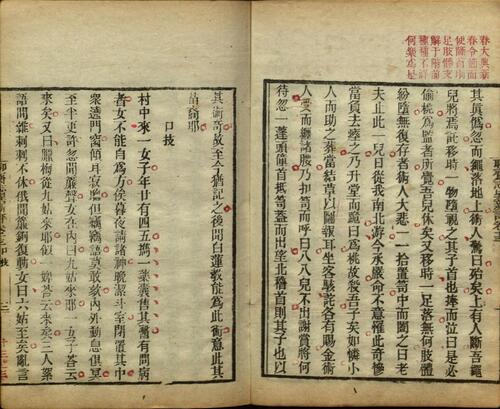 春大典新
春令節而
使首
足肢體支
解于階前
種種不祥
何樂為是
其真偽忽而繩落地上術人驚曰殆矣上有人斷吾繩
兒將焉託移時一物墮視之其子首也捧而泣曰是必
偷桃為監者所覺吾兒休矣又移時一足落無何肢體
紛墮無復存者術人大悲一一拾置笥中而闔之曰老
夫止此一兒日從我南北游今承嚴命不意罹此奇慘
當負去瘞之乃升堂而跪曰為桃故殺吾子矣如憐小
人而助之葬當結草以圖報耳坐客駭詫各有賜金術
人受而纏諸腰乃扣笥而呼曰八八兒不出謝賞將何
待忽一蓬頭僮首抵笥蓋而出望北稽首則其子也以
其術奇故至今猶記之後聞白蓮教能為此術意此其
苗裔耶
口技
村中來一女子年廿有四五攜一藥囊售其醫有問病
者女不能自為方俟暮夜請諸神晚潔斗室閉置其中
衆遶門窗傾耳寂聽但竊竊語莫敢欬內外動息俱冥
至半更許忽聞簾聲女在內曰九姑來耶一女子答云
來矣又曰臘梅從九姑來耶似一婢答云來矣三人絮
語間雜刺刺不休俄聞簾鉤復動女曰六姑至矣亂言